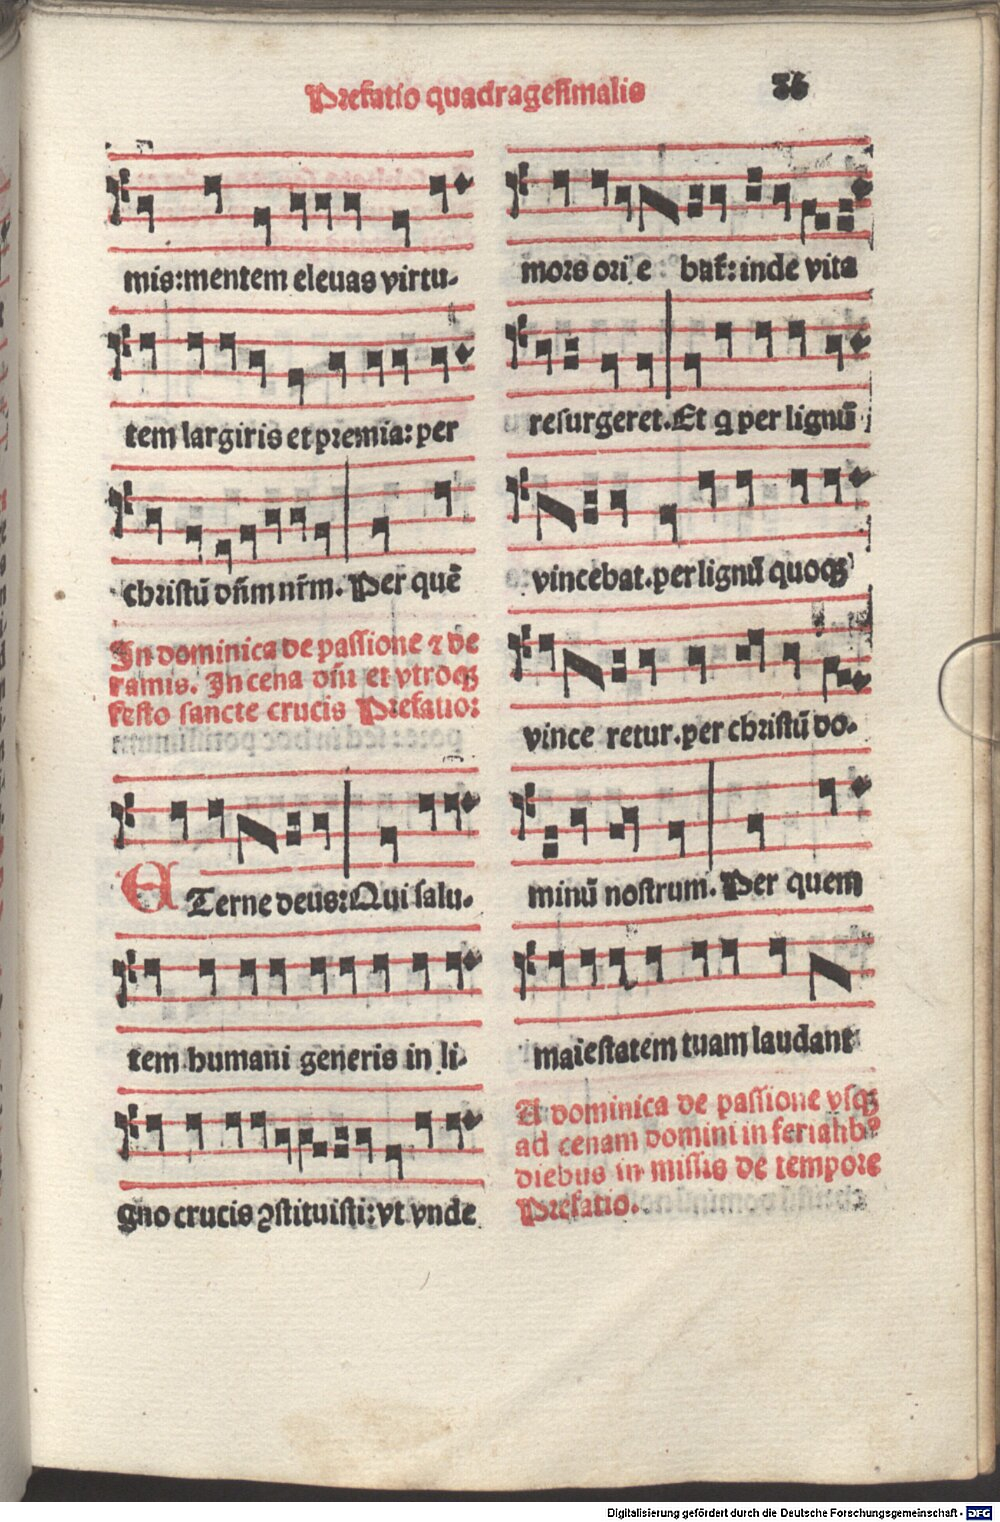 Prefatio quadragesimalis 36
mis:mentem eleuas virtu-
tem largiris et premia: per
christū dn̄m nr̄m. Per quē
In dominica de passione ⁊ de
ramis. In cena dn̄i et vtroqꝫ
festo sancte crucis Prefatio:
ETerne deus: Qui salu-
tem humani generis in li-
gno crucis ꝯstituisti: vt vnde
mors orie bat̄: inde vita
resurgeret. Et q per lignū
vincebat. per lignū quoqꝫ
vince retur. per christū do-
minū nostrum. Per quem
maiestatem tuam laudant
A dominica de passione vsqꝫ
ad cenam domini in ferialibꝰ
diebus in missis de tempore
Prefatio.
Digitalisierung gefördert durch die Deutsche Forschungsgemeinschaft - DFG